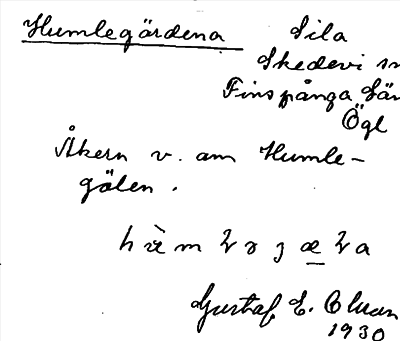 Humlegärdena Sila
Skedevi sn
Finspånga Län
Ögl
Åkern v. om Humle-
gölen.
Gustaf E.
1930